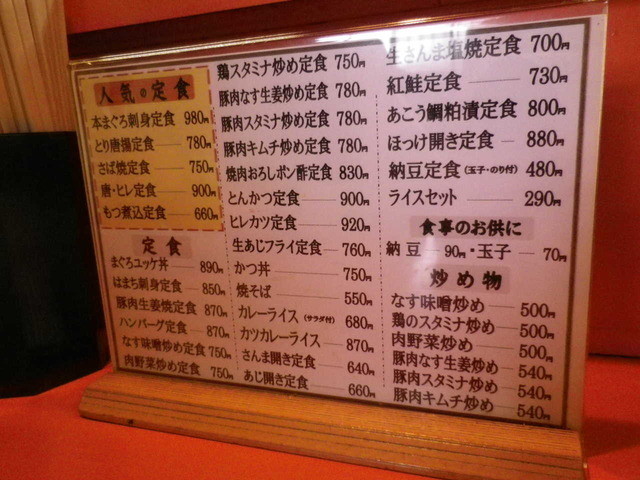 人気の定食
本まぐろ刺身定食 980円
とり唐揚定食 780円
さば焼定食 750円
唐・ヒレ定食 900円
もつ煮込定食 660円
定食
まぐろユッケ丼 890円
はまち刺身定食 850円
豚肉生姜焼定食 870円
ハンバーグ定食 870円
なす味噌炒め定食 750円
肉野菜炒め定食 750円
鶏スタミナ炒め定食 750円
豚肉なす生姜炒め定食 780円
豚肉スタミナ炒め定食 780円
豚肉キムチ炒め定食 780円
焼肉おろしポン酢定食 830円
とんかつ定食 900円
ヒレカツ定食 920円
生あじフライ定食 760円
かつ丼 750円
焼そば 550円
カレーライス(サラダ付) 680円
カツカレーライス 870円
さんま開き定食 640円
あじ開き定食 660円
生さんま塩焼定食 700円
紅鮭定食 730円
あこう鯛粕漬定食 800円
ほっけ開き定食 880円
納豆定食(玉子・のり付) 480円
ライスセット 290円
食事のお供に
納豆 90円・玉子 70円
炒め物
なす味噌炒め 500円
鶏のスタミナ炒め 500円
肉野菜炒め 500円
豚肉なす生姜炒め 540円
豚肉スタミナ炒め 540円
豚肉キムチ炒め 540円